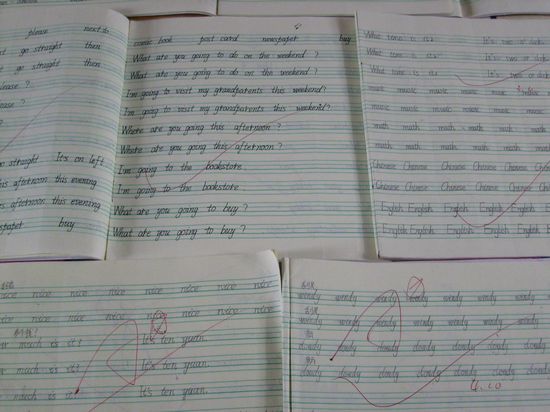 please next to
go straight then
go straight then
please ?
ease ?
go straight It's on left
this afternoon this evening
is afternoon this evening
newspaper buy
comic book post card newspaper buy
What are you going to do on the weekend ?
What are you going to do on the weekend ?
I'm going to visit my grandparents this weekend!
I'm going to visit my grandparents this weekend!
Where are you going this afternoon ?
Where are you going this afternoon ?
I'm going to the bookstore.
I'm going to the bookstore.
What are you going to buy ?
What are you going to buy ?
What time is it? It's two o'clock
What time is it? It's two o'clock
What time is it? It's two o'clock
music music music music music
music music music music music
math math math math math
math math math math math
Chinese Chinese Chinese Chinese Chinese
Chinese Chinese Chinese Chinese Chinese
English English English English English
English English English English English
nice nice nice nice nice nice nice
nice nice nice nice nice nice nice
much is it? It's ten yuan.
much is it? It's ten yuan.
much is it? It's ten yuan.
windy windy windy windy windy windy windy
windy windy windy windy windy windy windy
cloudy cloudy cloudy cloudy cloudy cloudy cloudy
cloudy cloudy cloudy cloudy cloudy cloudy cloudy